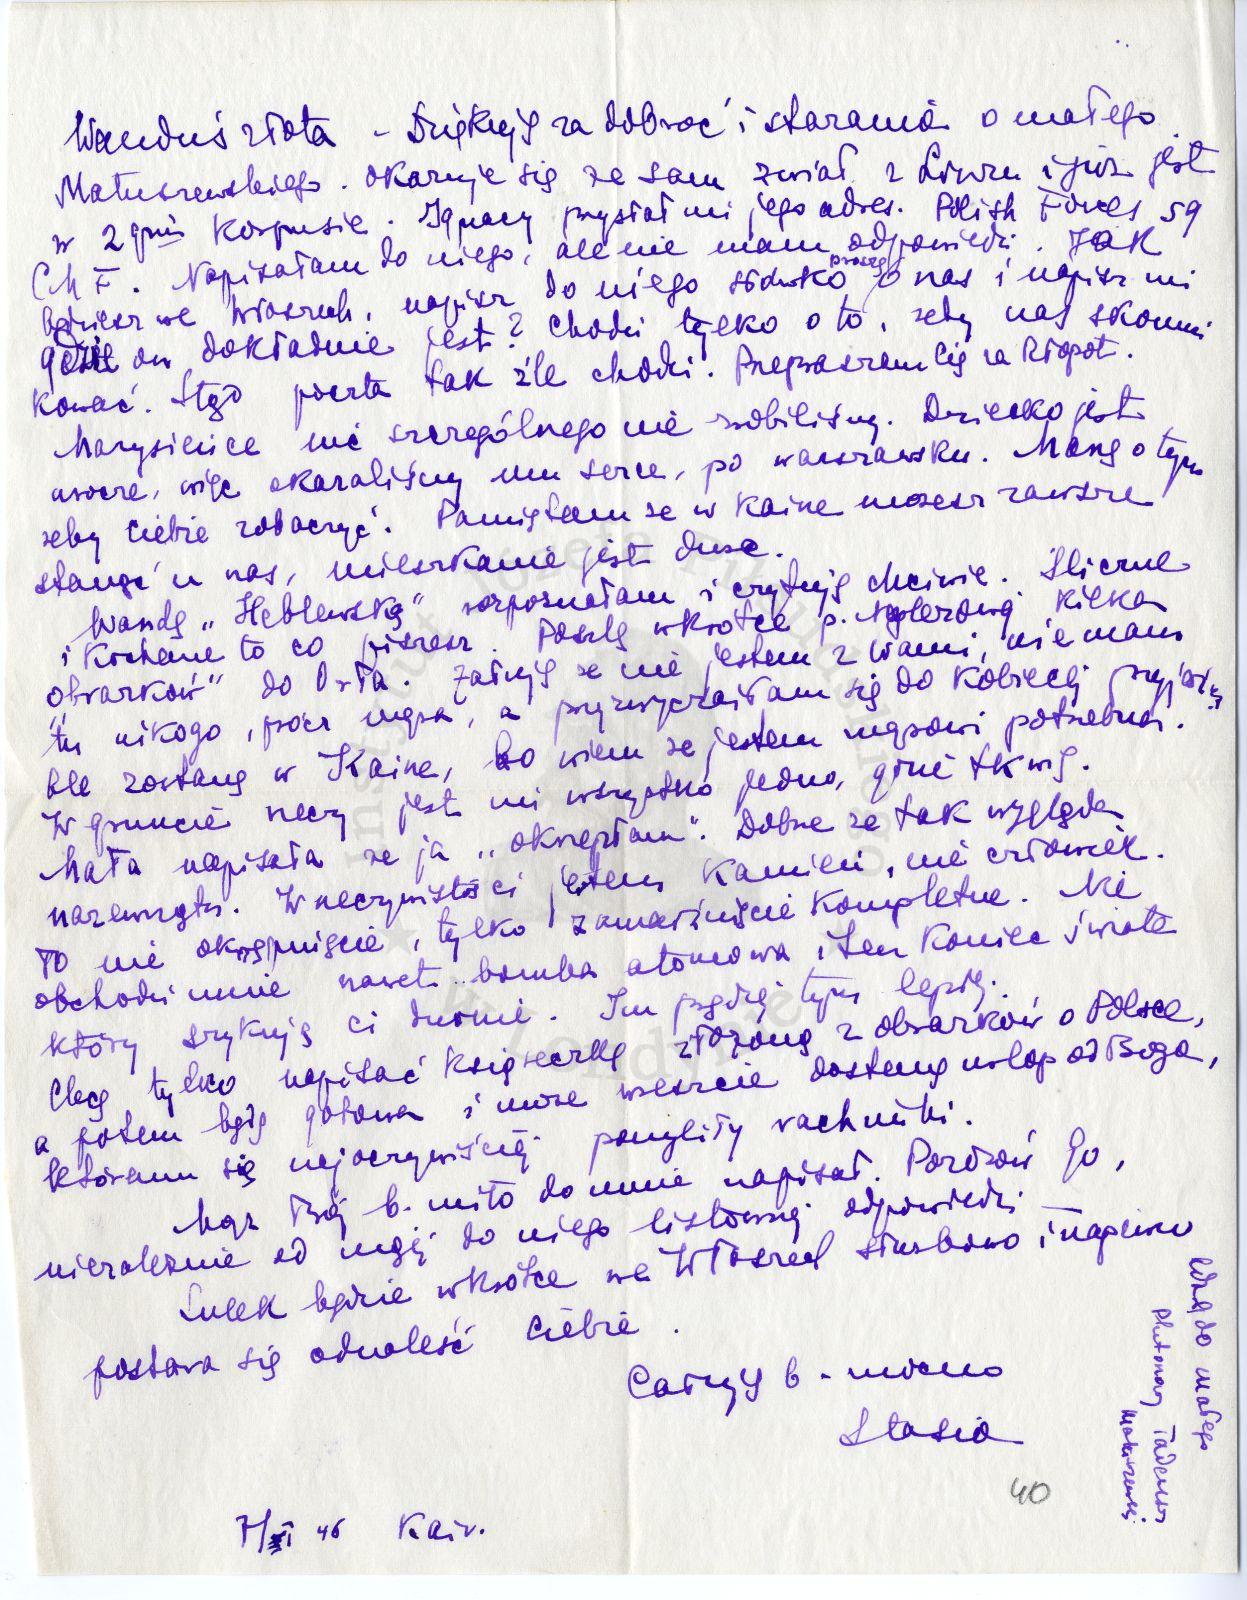 Wanduś złota - Dziękuję za dobroć i starania o małego
Matuszewskiego. Okazuje się ze sam zwiał z Liwu i już jest
w 2gim Korpusie. Ignacy przysłał mi jego adres. Polish Forces 59
CMF. Napisałam do niego, ale nie mam odpowiedzi. Jak
będziesz we Włoszech, napisz do niego słówko proszę o nas i napisz mi
gdzie on dokładnie jest? Chodzi tylko o to, żeby nas skomuni
kować. Stąd poczta tak źle chodzi. Przepraszam Cię za kłopot.
Marysieńce nic szczególnego nie zrobiliśmy. Dziecko jest
urocze, więc okazaliśmy mu serce, po warszawsku. Marzę o tym
żeby Ciebie zobaczyć. Pamiętam ze w Kairze możesz zawsze
stanąć u nas, mieszkanie jest duże.
Wandę „Heblewską" rozpoznałam i czytuję chciwie. Śliczne
i kochane to co piszesz. Poszlę wkrótce p. kilka
obrazków" do Orła. Żałuję ze nie jestem z Wami, nie mam
tu nikogo, prócz męża, a przyzwyczaiłam się do kobiecej przyjaźni.
Ale zostanę w Kairze, bo wiem ze jestem mężowi potrzebna.
W gruncie rzeczy jest mi wszystko jedno, gdzie tkwię.
Mała napisała ze ja „okrzepłam". Dobrze ze tak wygląda
nazewnątrz. W rzeczywistości jestem kamień, nie człowiek.
To nie okrzepnięcie, tylko zamarznięcie kompletne. Nie
obchodzi mnie nawet bomba atomowa i ten koniec świata
który szykują ci durnie. Im prędzej tym lepiej.
Chcę tylko napisać książeczkę złożoną z obrazków o Polsce,
a potem będę gotowa i może wreszcie dostanę urlop od Boga,
któremu się najoczywiściej pomyliły rachunki.
Mąż Twój b. miło do mnie napisał. Pozdrów Go,
niezależnie od mojej do niego listownej odpowiedzi
Lulek będzie wkrótce we Włoszech służbowo i napewno
postara się odnaleść Ciebie.
Całuję b. mocno
Stasia
40
7/XI 46 Kair.
do małego
Plutonowy Tadeusz
Matuszewski